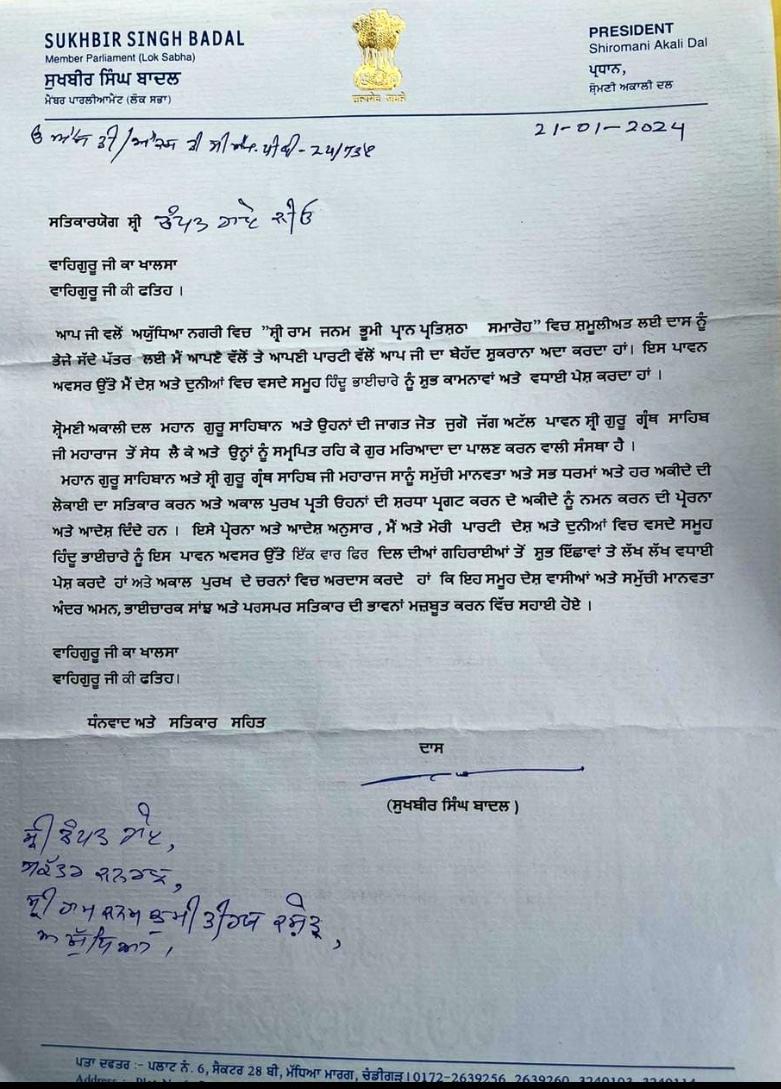 SUKHBIR SINGH BADAL
Member Parliament (Lok Sabha)
ਸੁਖਬੀਰ ਸਿੰਘ ਬਾਦਲ
ਮੇਂਬਰ ਪਾਰਲੀਆਮੈਂਟ (ਲੋਕ ਸਭਾ)
सत्यमेव जयते
PRESIDENT
Shiromani Akali Dal
ਪ੍ਰਧਾਨ,
ਸ਼੍ਰੋਮਣੀ ਅਕਾਲੀ ਦਲ
21-01-2024
ਸਤਿਕਾਰਯੋਗ ਸ਼੍ਰੀ ਚੰਪਤ ਰਾਏ ਜੀਓ
ਵਾਹਿਗੁਰੂ ਜੀ ਕਾ ਖਾਲਸਾ
ਵਾਹਿਗੁਰੂ ਜੀ ਕੀ ਫਤਿਹ ।
ਆਪ ਜੀ ਵਲੋਂ ਅਯੁੱਧਿਆ ਨਗਰੀ ਵਿਚ "ਸ਼੍ਰੀ ਰਾਮ ਜਨਮ ਭੂਮੀ ਪ੍ਰਾਨ ਪ੍ਰਤਿਸ਼ਠਾ ਸਮਾਰੋਹ" ਵਿਚ ਸ਼ਮੂਲੀਅਤ ਲਈ ਦਾਸ ਨੂੰ
ਭੇਜੇ ਸੱਦੇ ਪੱਤਰ ਲਈ ਮੈਂ ਆਪਣੇ ਵੱਲੋਂ ਤੇ ਆਪਣੀ ਪਾਰਟੀ ਵੱਲੋਂ ਆਪ ਜੀ ਦਾ ਬੇਹੱਦ ਸ਼ੁਕਰਾਨਾ ਅਦਾ ਕਰਦਾ ਹਾਂ। ਇਸ ਪਾਵਨ
ਅਵਸਰ ਉੱਤੇ ਮੈਂ ਦੇਸ਼ ਅਤੇ ਦੁਨੀਆਂ ਵਿਚ ਵਸਦੇ ਸਮੂਹ ਹਿੰਦੂ ਭਾਈਚਾਰੇ ਨੂੰ ਸ਼ੁਭ ਕਾਮਨਾਵਾਂ ਅਤੇ ਵਧਾਈ ਪੇਸ਼ ਕਰਦਾ ਹਾਂ ।
ਸ਼੍ਰੋਮਣੀ ਅਕਾਲੀ ਦਲ ਮਹਾਨ ਗੁਰੂ ਸਾਹਿਬਾਨ ਅਤੇ ਉਹਨਾਂ ਦੀ ਜਾਗਤ ਜੋਤ ਜੁਗੋ ਜੱਗ ਅਟੱਲ ਪਾਵਨ ਸ਼੍ਰੀ ਗੁਰੂ ਗ੍ਰੰਥ ਸਾਹਿਬ
ਜੀ ਮਹਾਰਾਜ ਤੋਂ ਸੇਧ ਲੈ ਕੇ ਅਤੇ ਉਨ੍ਹਾਂ ਨੂੰ ਸਮ੍ਰਪਿਤ ਰਹਿ ਕੇ ਗੁਰ ਮਰਿਆਦਾ ਦਾ ਪਾਲਣ ਕਰਨ ਵਾਲੀ ਸੰਸਥਾ ਹੈ ।
ਮਹਾਨ ਗੁਰੂ ਸਾਹਿਬਾਨ ਅਤੇ ਸ਼੍ਰੀ ਗੁਰੂ ਗ੍ਰੰਥ ਸਾਹਿਬ ਜੀ ਮਹਾਰਾਜ ਸਾਨੂੰ ਸਮੁੱਚੀ ਮਾਨਵਤਾ ਅਤੇ ਸਭ ਧਰਮਾਂ ਅਤੇ ਹਰ ਅਕੀਦੇ ਦੀ
ਲੋਕਾਈ ਦਾ ਸਤਿਕਾਰ ਕਰਨ ਅਤੇ ਅਕਾਲ ਪੁਰਖ ਪ੍ਰਤੀ ਓਹਨਾਂ ਦੀ ਸ਼ਰਧਾ ਪ੍ਰਗਟ ਕਰਨ ਦੇ ਅਕੀਦੇ ਨੂੰ ਨਮਨ ਕਰਨ ਦੀ ਪ੍ਰੇਰਨਾ
ਅਤੇ ਆਦੇਸ਼ ਦਿੰਦੇ ਹਨ । ਇਸੇ ਪ੍ਰੇਰਨਾ ਅਤੇ ਆਦੇਸ਼ ਅਨੁਸਾਰ , ਮੈਂ ਅਤੇ ਮੇਰੀ ਪਾਰਟੀ ਦੇਸ਼ ਅਤੇ ਦੁਨੀਆਂ ਵਿਚ ਵਸਦੇ ਸਮੂਹ
ਹਿੰਦੂ ਭਾਈਚਾਰੇ ਨੂੰ ਇਸ ਪਾਵਨ ਅਵਸਰ ਉੱਤੇ ਇੱਕ ਵਾਰ ਫਿਰ ਦਿਲ ਦੀਆਂ ਗਹਿਰਾਈਆਂ ਤੋਂ ਸ਼ੁਭ ਇੱਛਾਵਾਂ ਤੇ ਲੱਖ ਲੱਖ ਵਧਾਈ
ਪੇਸ਼ ਕਰਦੇ ਹਾਂ ਅਤੇ ਅਕਾਲ ਪੁਰਖ ਦੇ ਚਰਨਾਂ ਵਿਚ ਅਰਦਾਸ ਕਰਦੇ ਹਾਂ ਕਿ ਇਹ ਸਮੂਹ ਦੇਸ਼ ਵਾਸੀਆਂ ਅਤੇ ਸਮੁੱਚੀ ਮਾਨਵਤਾ
ਅੰਦਰ ਅਮਨ, ਭਾਈਚਾਰਕ ਸਾਂਝ ਅਤੇ ਪਰਸਪਰ ਸਤਿਕਾਰ ਦੀ ਭਾਵਨਾਂ ਮਜ਼ਬੂਤ ਕਰਨ ਵਿੱਚ ਸਹਾਈ ਹੋਏ ।
ਵਾਹਿਗੁਰੂ ਜੀ ਕਾ ਖਾਲਸਾ
ਵਾਹਿਗੁਰੂ ਜੀ ਕੀ ਫਤਿਹ।
ਧੰਨਵਾਦ ਅਤੇ ਸਤਿਕਾਰ ਸਹਿਤ
ਦਾਸ
(ਸੁਖਬੀਰ ਸਿੰਘ ਬਾਦਲ )
ਸ਼੍ਰੀ ਚੰਪਤ ਰਾਏ,
ਸਕੱਤਰ ਜਨਰਲ,
ਸ਼੍ਰੀ ਰਾਮ ਜਨਮ ਭੂਮੀ ਤੀਰਥ ਕਸ਼ੇਤ੍ਰ,
ਅਯੁੱਧਿਆ,
ਪਤਾ ਦਫਤਰ :- ਪਲਾਟ ਨੰ. 6, ਸੈਕਟਰ 28 ਬੀ, ਮੱਧਿਆ ਮਾਰਗ, ਚੰਡੀਗੜ੍ਹ। 0172-2639256, 2639260,